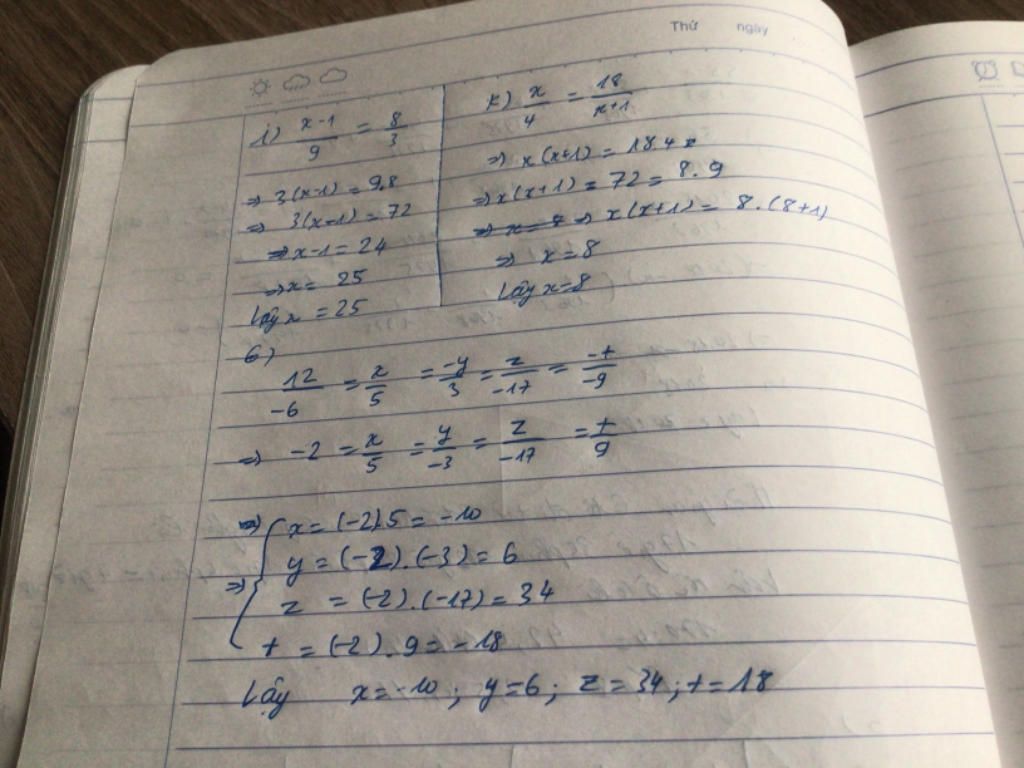 Thứ ngày
i) x-1/9 = 8/3
=> 3(x-1) = 9.8
=> 3(x-1) = 72
=> x-1 = 24
=> x = 25
Lấy x = 25
k) x/4 = 18/x+1
=> x(x+1) = 18.4
=> x(x+1) = 72 = 8.9
=> x(x+1) = 8.(8+1)
=> x = 8
Lấy x=8
6)
12/-6 = x/5 = -y/3 = z/-17 = -t/-9
=> -2 = x/5 = y/-3 = z/-17 = t/9
=> x = (-2).5 = -10
=> y = (-2).(-3) = 6
z = (-2).(-17) = 34
t = (-2).9 = -18
Lấy x=-10; y=6; z=34; t=18